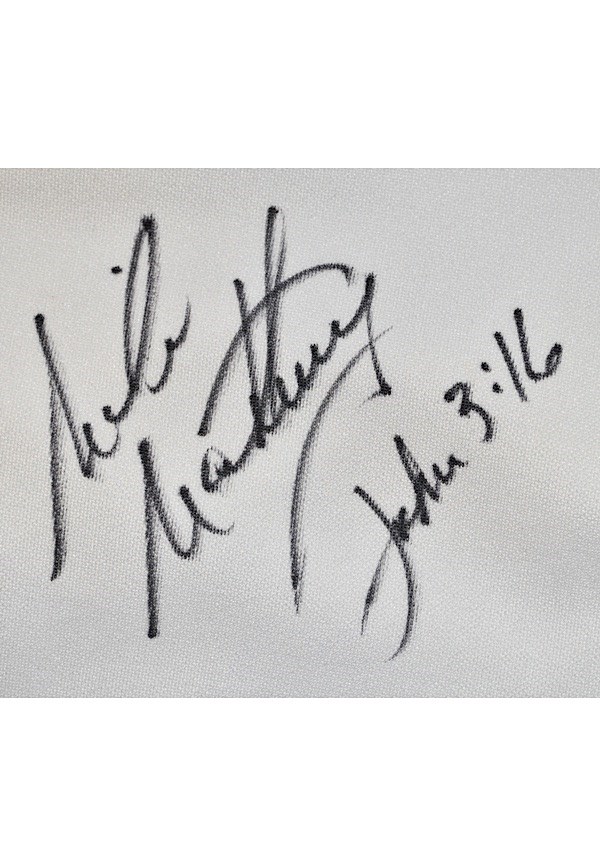 Mike
Matheny
John 3:16